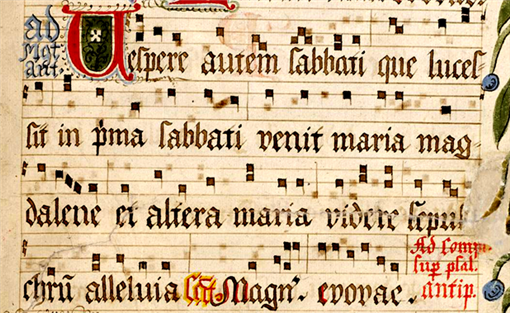 ad
Mgt
ant.
Vespere autem sabbati que luces-
sit in p̄ma sabbati venit maria mag-
dalene et altera maria videre sepul
chrū alleluia Cāt Magn̄. evovae.
Ad Comp
sup̄ psal.
antip.